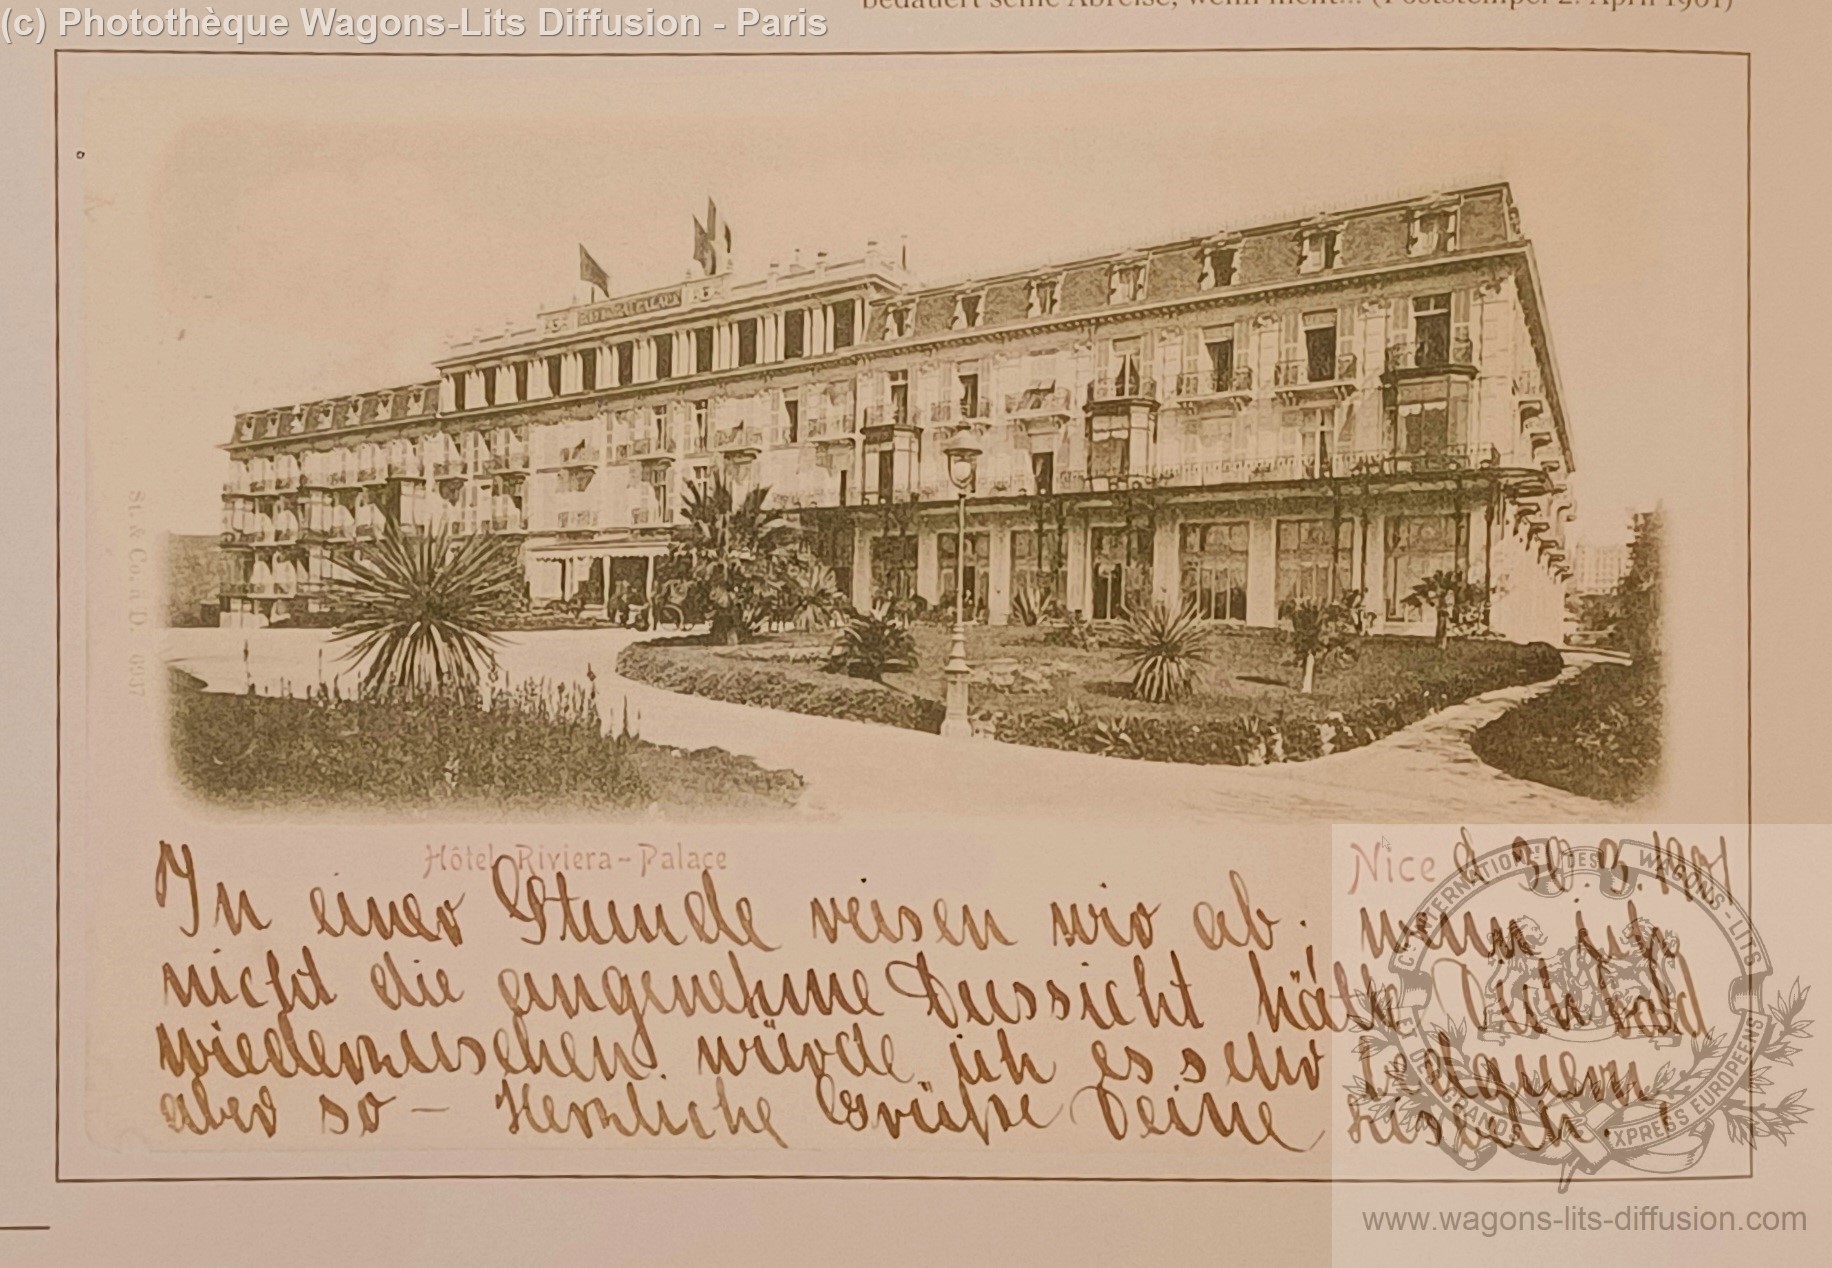 bedauert seine Abreise, wenn nicht... (Poststempel 2. April 1901)
(c) Photothèque Wagons-Lits Diffusion - Paris
RIVIERA PALACE
St. & Co. a D. 6937
Hôtel Riviera-Palace
Nice d. 30.3.1901
In einer Stunde reisen wir ab; wenn ich
nicht die angenehme Aussicht hätte Dich bald
wiederzusehen würde ich es sehr
aber so – Herzliche Grüße Deine
CIE INTERNATIONALE DES WAGONS-LITS
ET DES GRANDS EXPRESS EUROPÉENS
www.wagons-lits-diffusion.com